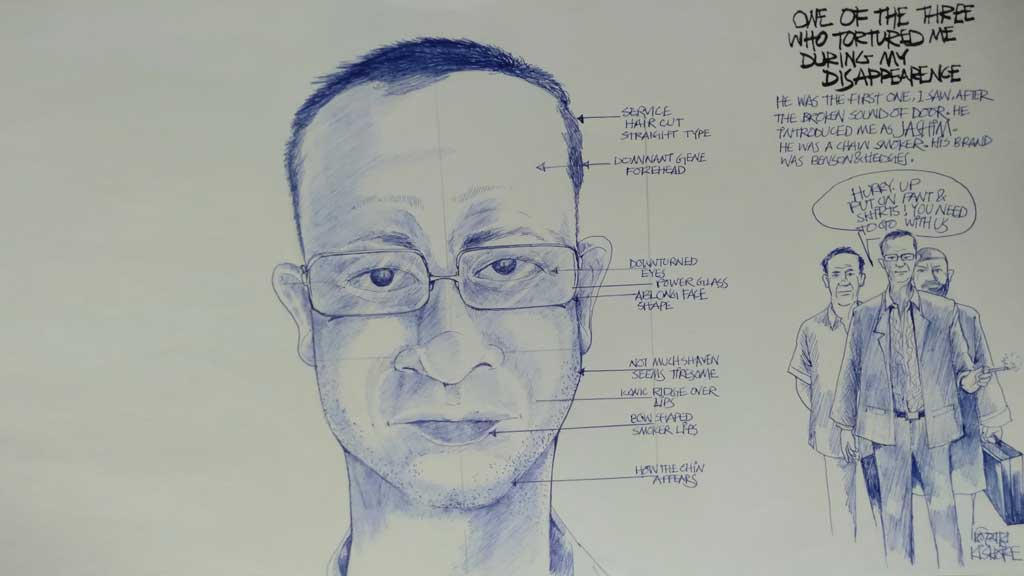 ONE OF THE THREE
WHO TORTURED ME
DURING MY
DISAPPEARENCE
HE WAS THE FIRST ONE, I SAW, AFTER
THE BROKEN SOUND OF DOOR. HE
INTRODUCED ME AS JASHIM.
HE WAS A CHAIN SMOKER. HIS BRAND
WAS BENSON & HEDGES.
SERVICE
HAIR CUT
STRAIGHT TYPE
DOMINANT GENE
FOREHEAD
DOWNTURNED
EYES
POWER GLASS
ABLONG FACE
SHAPE
NOT MUCH SHAVEN
SEEMS TIRESOME
ICONIC RIDGE OVER
LIPS
BOW SHAPED
SMOKER LIPS
HOW THE CHIN
APPEARS
HURRY UP
PUT ON PANT &
SHIRTS! YOU NEED
TO GO WITH US
KISHORE